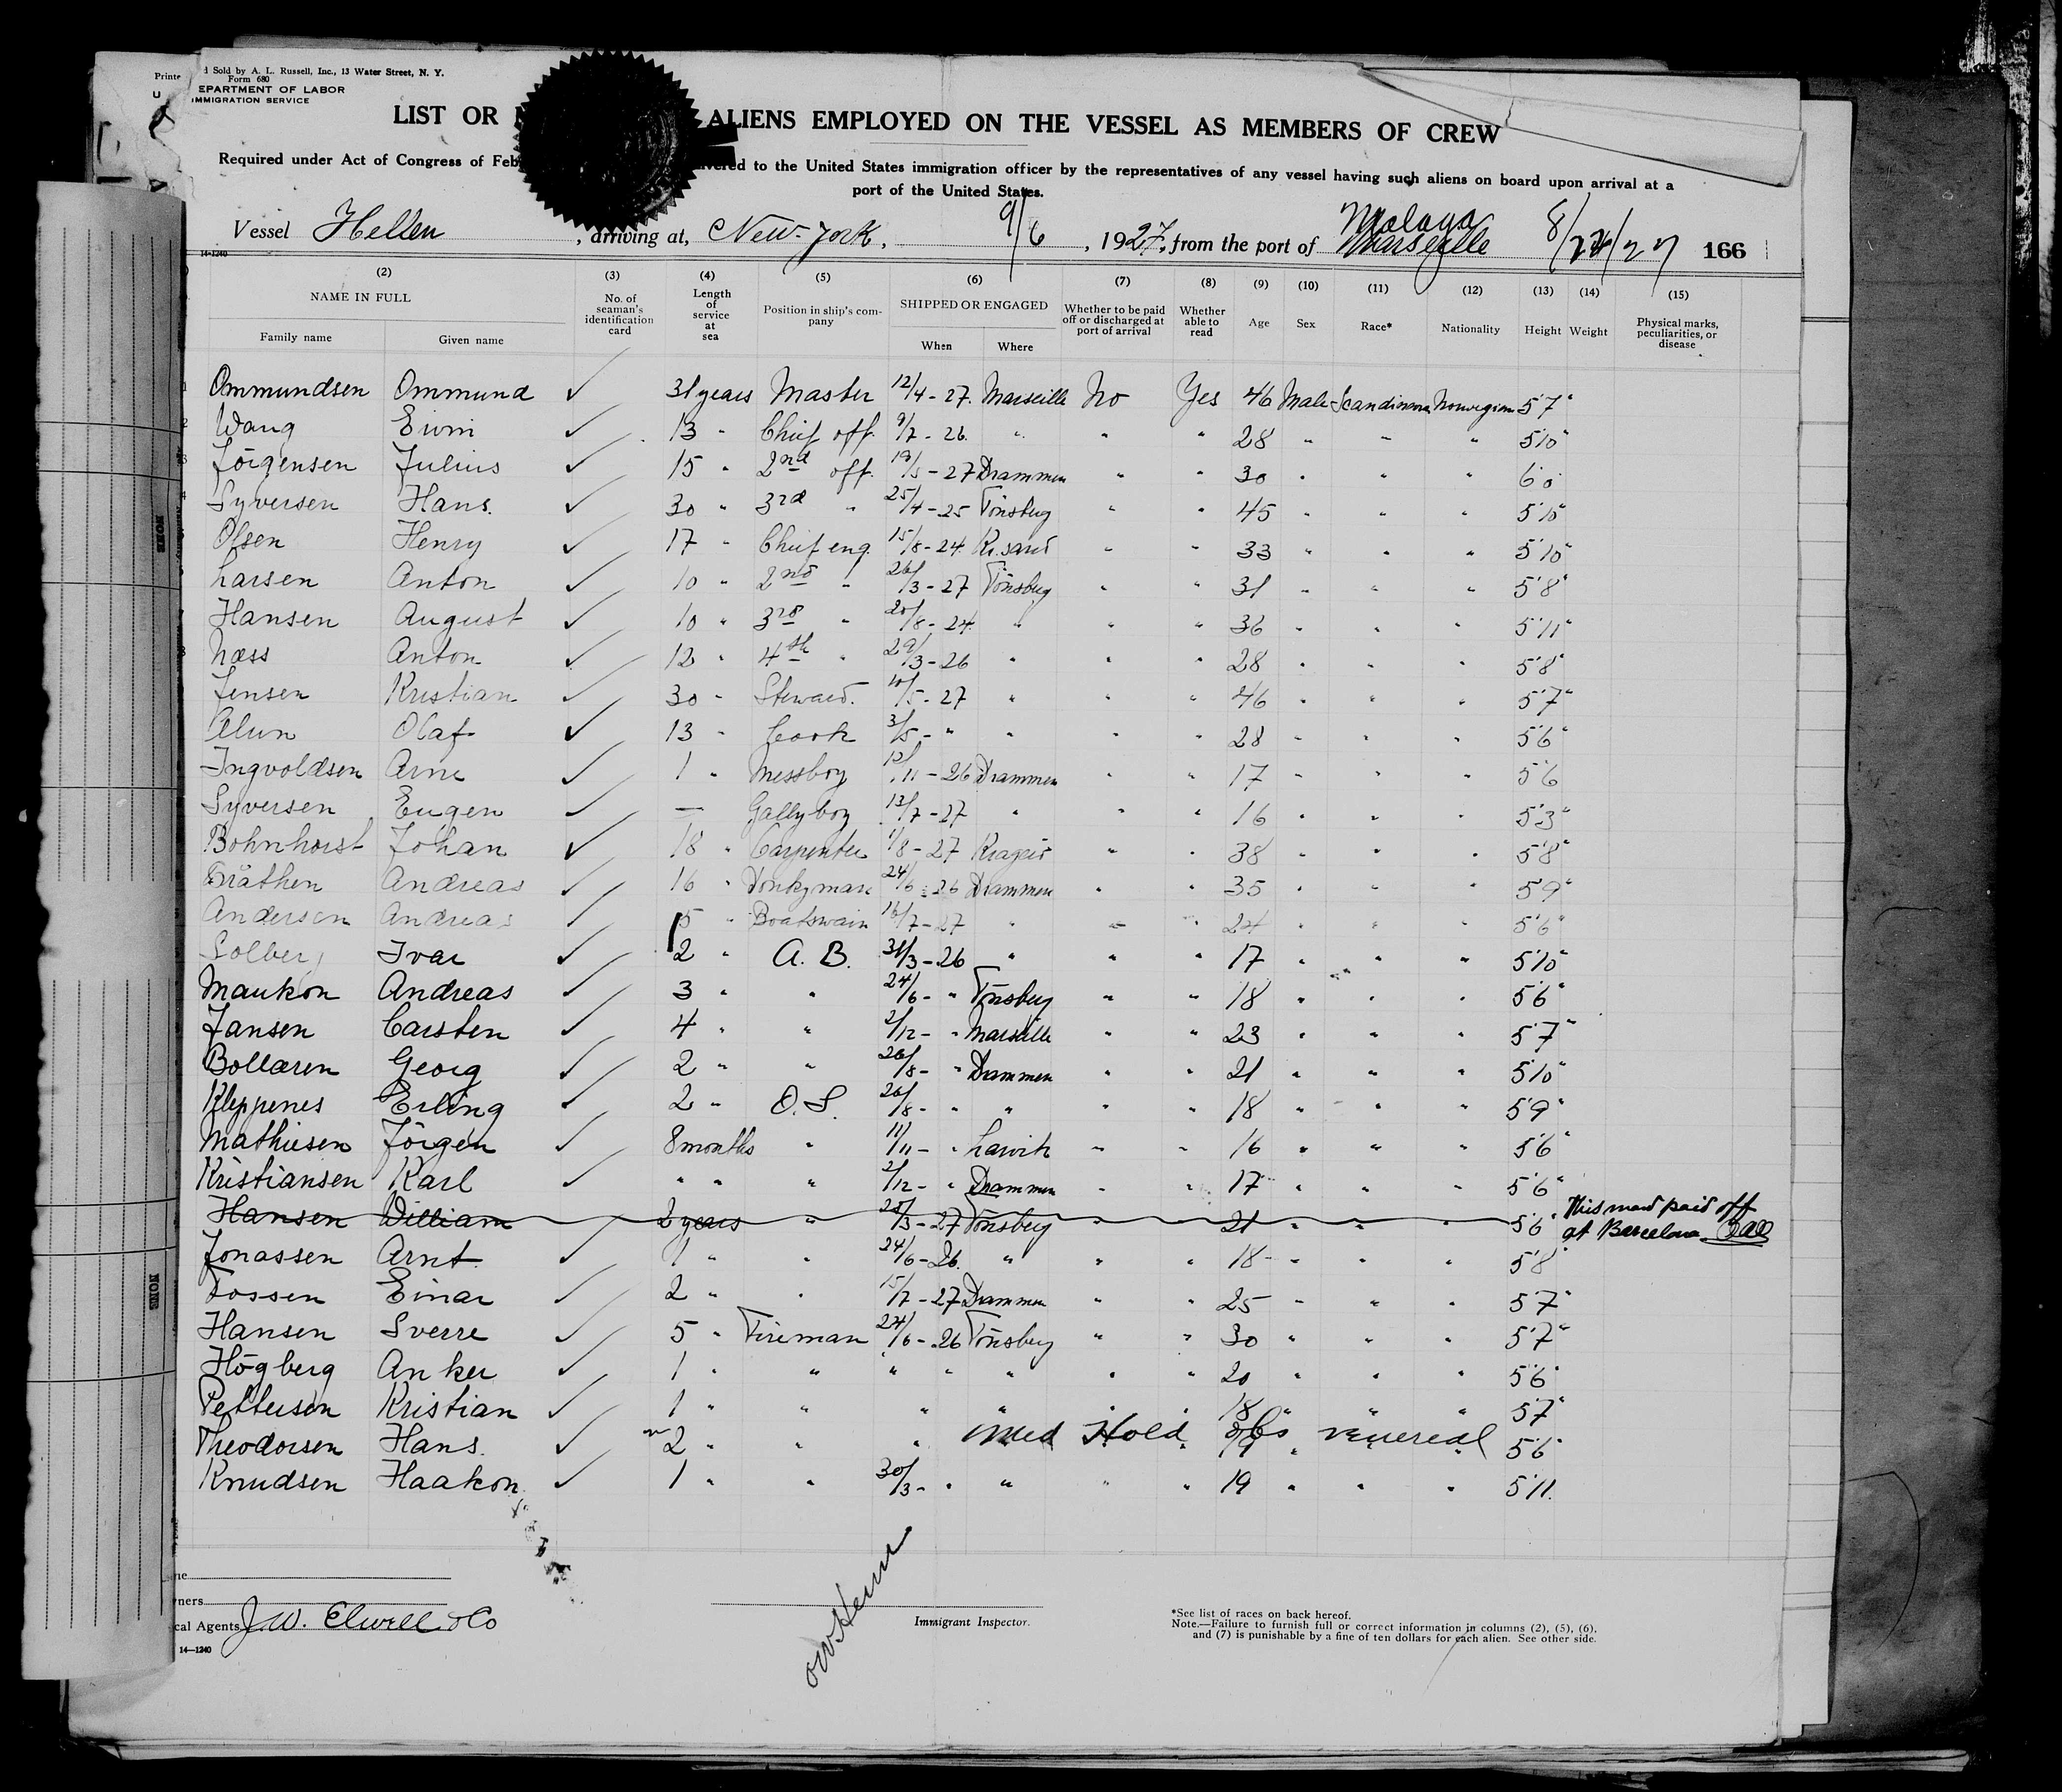 Sold by A. L. Russell, Inc., 13 Water Street, N. Y.
Form 680
DEPARTMENT OF LABOR
IMMIGRATION SERVICE
LIST OR ALIENS EMPLOYED ON THE VESSEL AS MEMBERS OF CREW
Required under Act of Congress of Feb to the United States immigration officer by the representatives of any vessel having such aliens on board upon arrival at a
port of the United States.
Malaga
Vessel Hellen, arriving at, New-York, 9/6, 1927, from the port of Marseille 8/24/27 166
14-1240
(2) (3) (4) (5) (6) (7) (8) (9) (10) (11) (12) (13) (14) (15)
NAME IN FULL No. of seaman's identification card Length of service at sea Position in ship's company SHIPPED OR ENGAGED Whether to be paid off or discharged at port of arrival Whether able to read Age Sex Race* Nationality Height Weight Physical marks, peculiarities, or disease
Family name Given name When Where
Ommundsen Ommund ✓ 31 years Master 12/4-27. Marseille No Yes 46 Male Scandinavia Norwegian 5'7"
Wang ✓ 13 " Chief off. 9/7-26. " " " 28 " " " 5'10"
Jörgensen Julius ✓ 15 " 2nd off. 19/5-27 Drammen " " 30 " " " 6'0"
Syversen Hans. ✓ 30 " 3rd " 25/4-25 Tönsberg " " 45 " " " 5'10"
Olsen Henry ✓ 17 " Chief eng. 15/8-24. Kr.sand " " 33 " " " 5'10"
Larsen Anton ✓ 10 " 2nd " 26/3-27 Tönsberg " " 31 " " " 5'8"
Hansen August ✓ 10 " 3rd " 20/8-24. " " " 36 " " " 5'11"
Næss Anton ✓ 12 " 4th " 29/3-26 " " " 28 " " " 5'8"
Jensen Kristian ✓ 30 " Steward. 10/5-27 " " 46 " " " 5'7"
Olaf ✓ 13 " Cook 3/5-" " " " 28 " " " 5'6"
Ingvoldsen Arne ✓ 1 " Messboy 12/11-26 Drammen " " 17 " " " 5'6
Syversen Eugen ✓ — Gallyboy 13/7-27 " " " 16 " " " 5'3"
Bohnhorst Johan ✓ 18 " Carpenter 1/8-27 Kragerö " " 38 " " " 5'8"
Bråthen Andreas ✓ 16 " Donkyman 24/6-26 Drammen " " 35 " " " 5'9"
Andersen Andreas ✓ 5 " Boatswain 16/7-27 " " " 24 " " " 5'6"
Solberg Ivar ✓ 2 " A. B. 31/3-26 " " " 17 " " " 5'10"
Maukon Andreas ✓ 3 " " 24/6-" Tönsberg " " 18 " " " 5'6"
Jansen Carsten ✓ 4 " " 2/12-" Marseille " " 23 " " " 5'7"
Bollæren Georg ✓ 2 " " 26/8-" Drammen " " 21 " " " 5'10"
Kleppenes Erling ✓ 2 " O.S. 20/8-" " " " 18 " " " 5'9"
Mathiesen Jörgen ✓ 8 months " 11/11-" Larvik " " 16 " " " 5'6"
Kristiansen Karl ✓ " " " 2/12-" Drammen " " 17 " " " 5'6"
Hansen William 2 years " 25/3-27 Tönsberg " " 21 " " " 5'6" This man paid off
at Barcelona
Jonassen Arnt ✓ 1 " " 24/6-26. " " " 18 " " " 5'8"
Fossen Einar ✓ 2 " " 15/7-27 Drammen " " 25 " " " 5'7"
Hansen Sverre ✓ 5 " Fireman 24/6-26 Tönsberg " " 30 " " " 5'7"
Högberg Anker ✓ 1 " " " " " " " 20 " " " 5'6"
Pettersen Kristian ✓ 1 " " " " " 18 " " " 5'7"
Theodorsen Hans. ✓ 2 " " " Med Hold venereal 5'6"
Knudsen Haakon ✓ 1 " " 30/3-" " " " 19 " " " 5'11.
J.W. Elwell & Co
Immigrant Inspector.
*See list of races on back hereof.
Note.—Failure to furnish full or correct information in columns (2), (5), (6),
and (7) is punishable by a fine of ten dollars for each alien. See other side.
14—1240
NONE
NONE